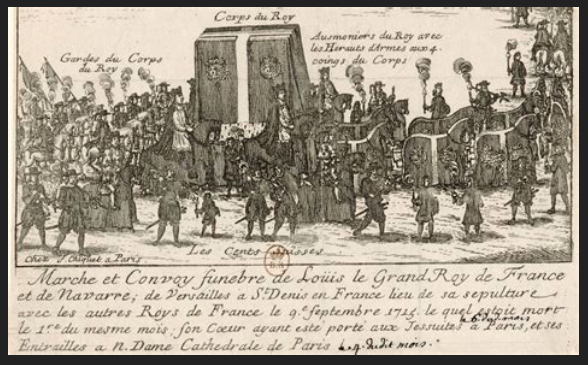 Corps du Roy
Gardes du Corps
du Roy
Ausmoniers du Roy avec
les Herauts d'Armes aux 4.
coings du Corps
Les Cents Suisses
Chez J. Chiquet a Paris
Marche et Convoy funebre de Loüis le Grand Roy de France
et de Navarre; de Versailles a St. Denis en France lieu de sa sepulture
avec les autres Roys de France le 9.e Septembre 1715. le quel estoit mort
le 1.er du mesme mois; son Cœur ayant esté porté aux Jessuites a Paris, et ses
le 6 du mois
Entrailles a N. Dame Cathedrale de Paris le 4 dudit mois.